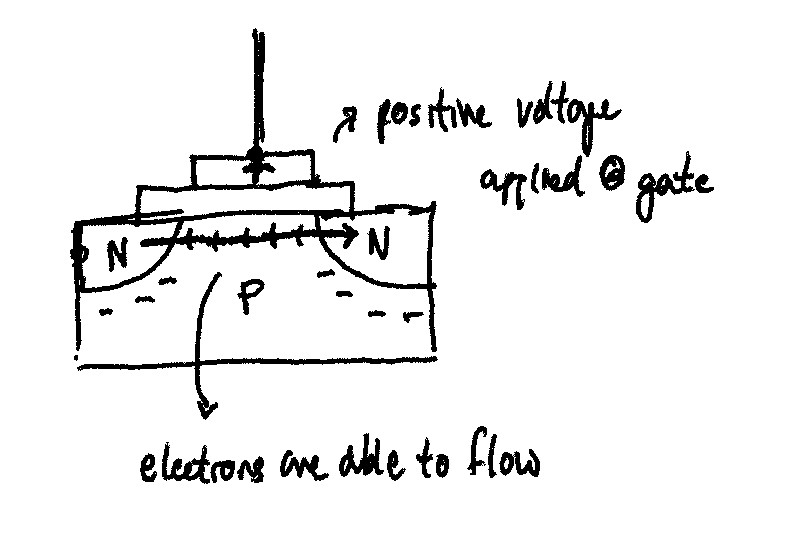 positive voltage
applied @ gate
N
N
P
electrons are able to flow